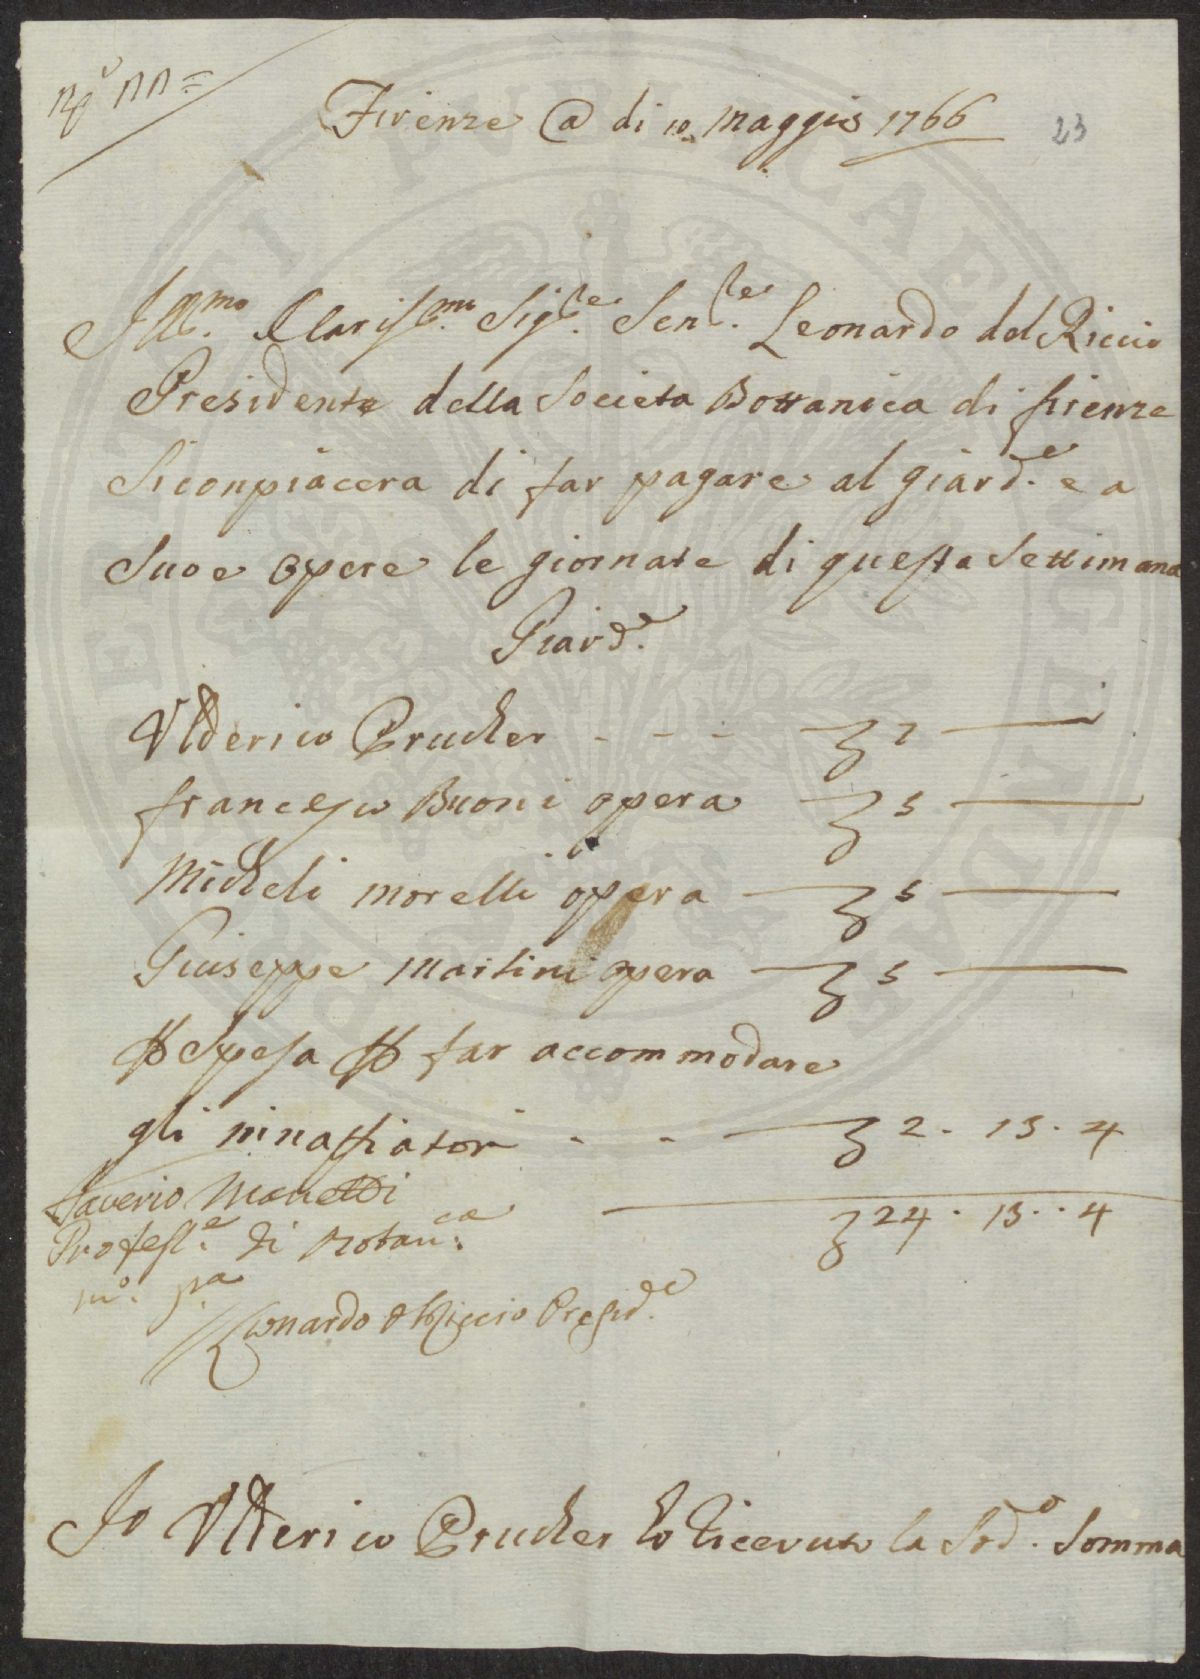 Firenze @ di 10 Maggio 1766
23
Ill.mo Clariss.mo Sig.re Sen.re Leonardo del Riccio
Presidente della Societa Bottanica di firenze
Siconpiacera di far pagare al giard.e e a
Suoe opere le giornate di questa Settimana
Giard.e
Ulderico Prucher - - - 7
francesco Buoni opera 5
Micheli Morelli opera 5
Giuseppe Martini opera 5
Spesa far accommodare
gli ninaffiatori - - 2. 13. 4
Saverio Manetti
24. 13. 4
Profess.e di Botan.ca
m.o p.a
Leonardo del Riccio Presid.e
Io Ulderico Prucher ho Ricevuto la Sud.a Somma